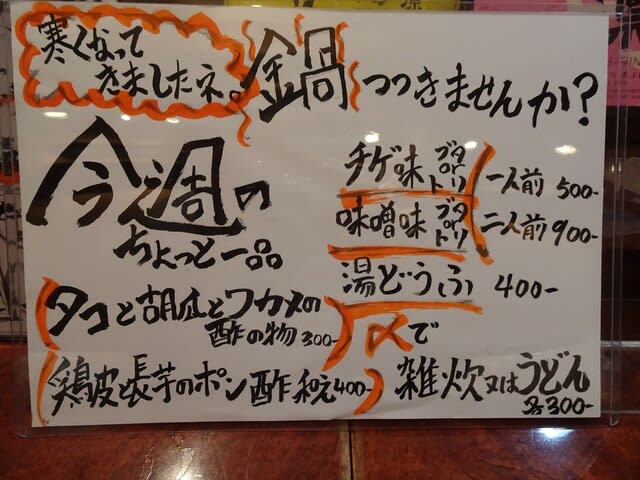 寒くなって
きましたネ。
鍋つつきませんか?
今週の
ちょっと一品
チゲ味 ブタorトリ
味噌味 ブタorトリ
一人前 500-
二人前 900-
湯どうふ 400-
タコと胡瓜とワカメの
酢の物 300-
鶏皮と長芋のポン酢和え 400-
〆で
雑炊又はうどん
各300-